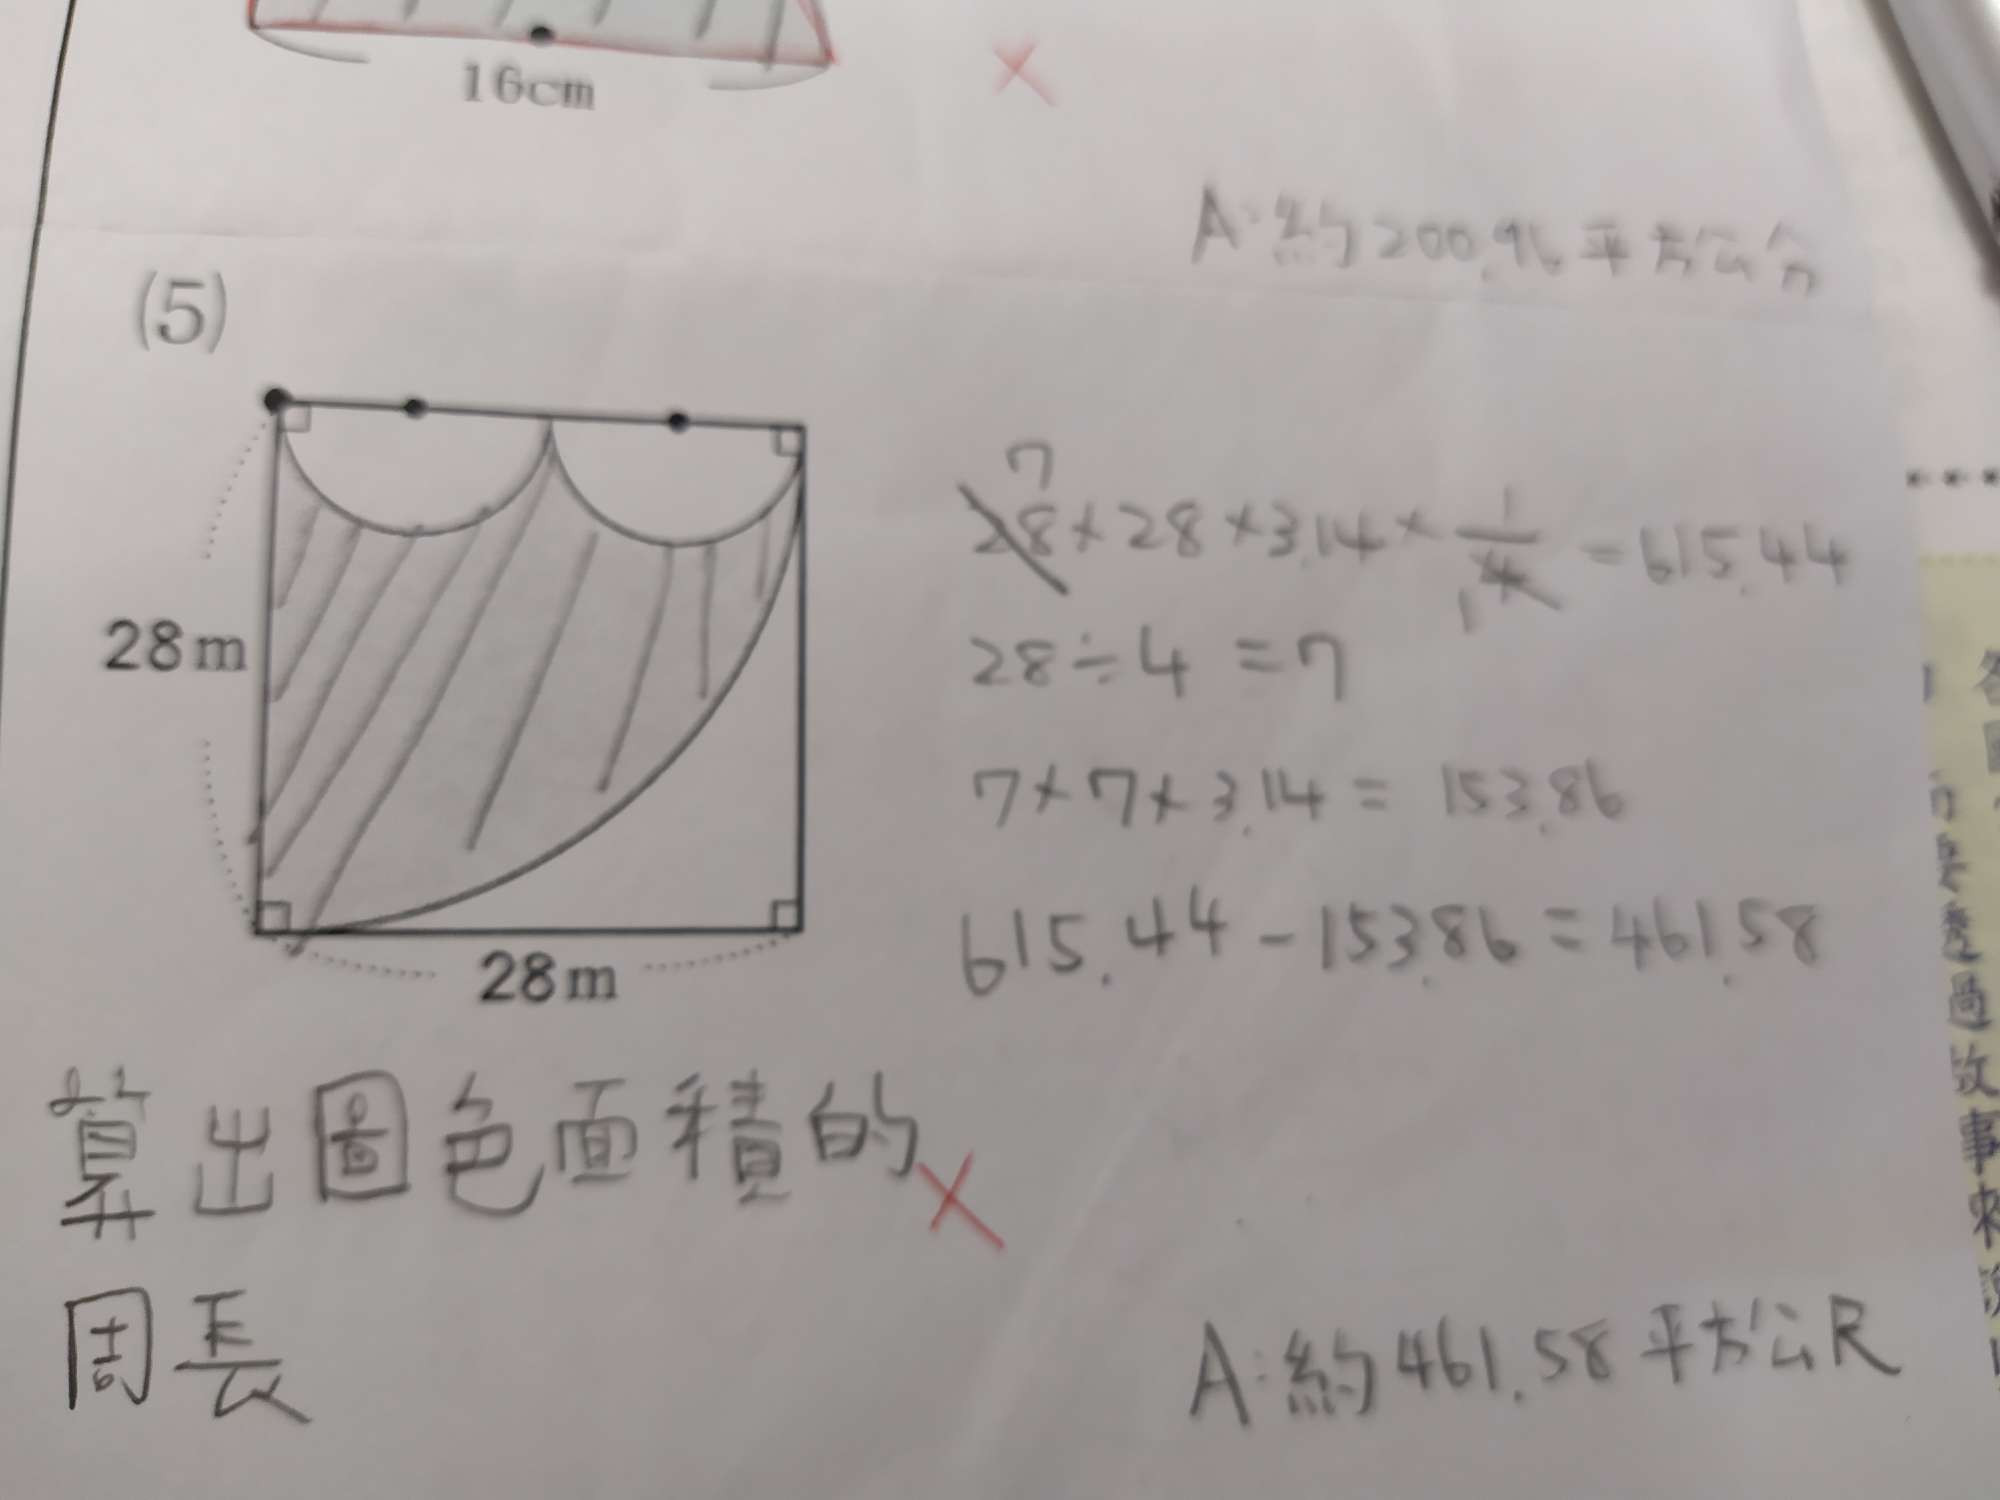 16cm
A:約200.96平方公分
(5)
7
28×28×3.14×1/4=615.44
1
28÷4=7
28m
7×7×3.14=153.86
615.44-153.86=461.58
28m
算出圖色面積的
周長
A:約461.58平方公尺
故事來